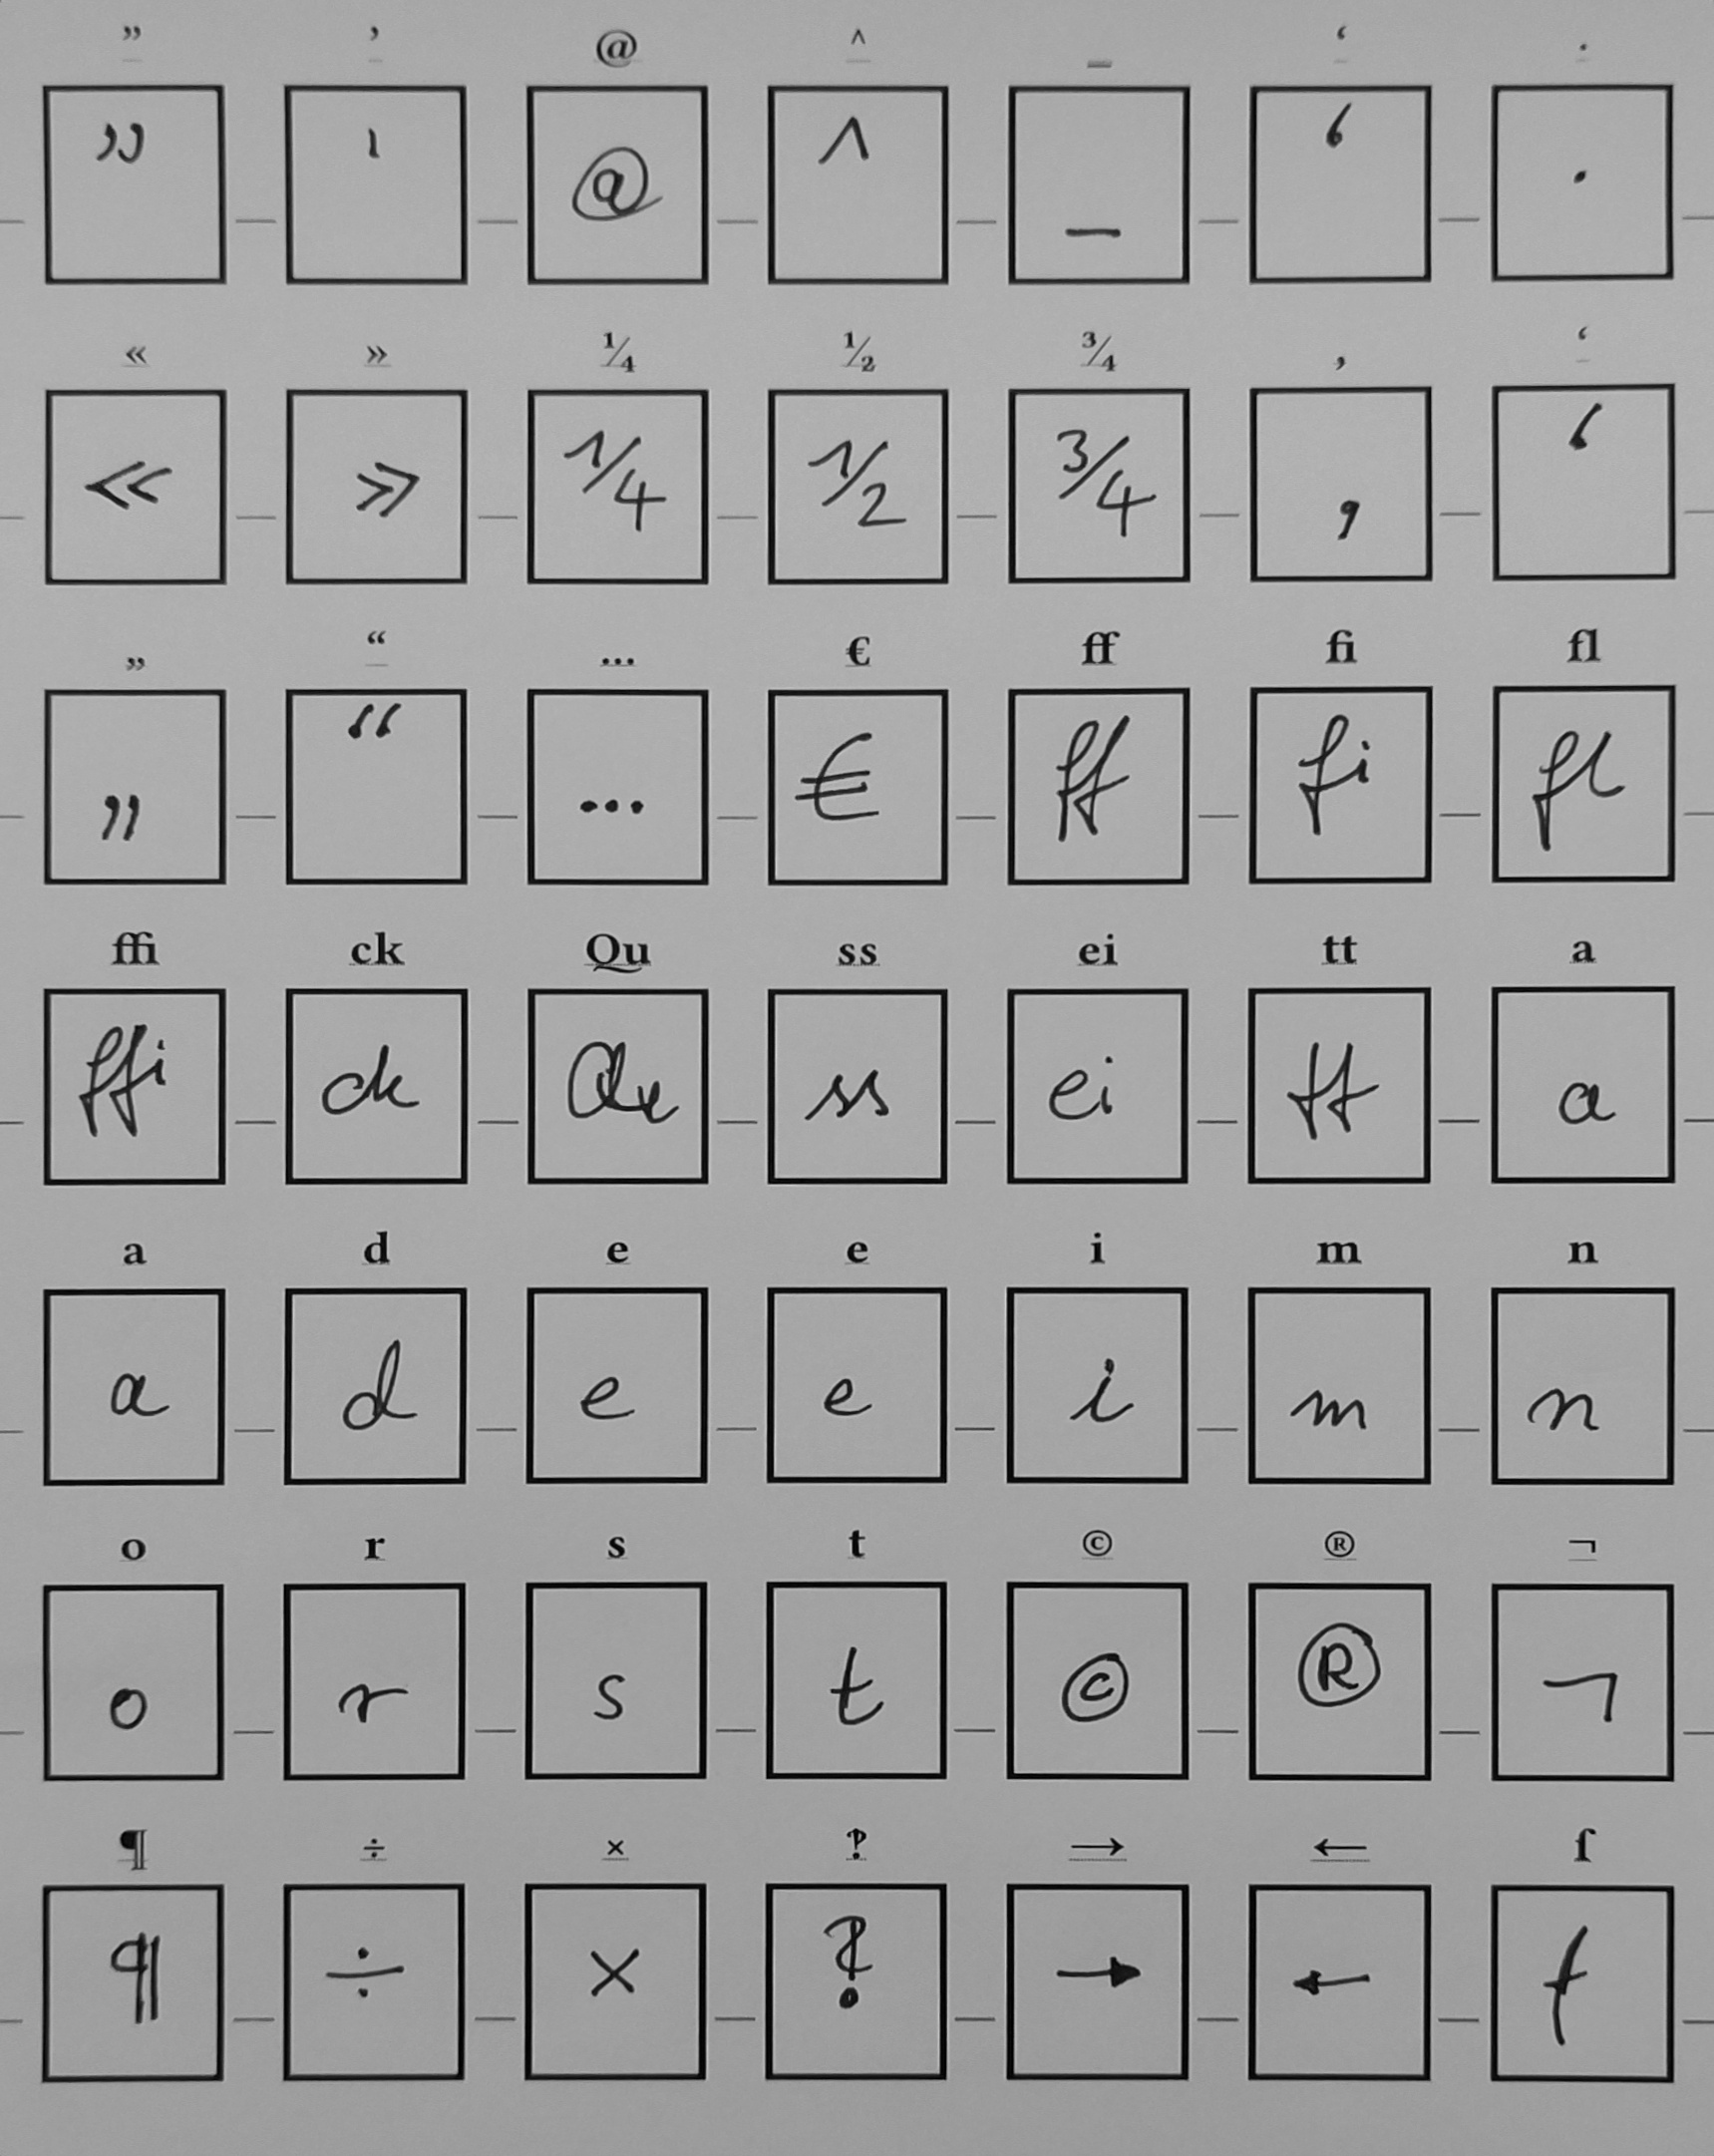 ” ’ @ ^ _ ‘ ·
” ' @ ^ _ ‘ ·
« » ¼ ½ ¾ ‚ ‘
« » ¼ ½ ¾ ‚ ‘
„ “ … € ff fi fl
„ “ … € ff fi fl
ffi ck Qu ss ei tt a
ffi ck Qu ss ei tt a
a d e e i m n
a d e e i m n
o r s t © ® ¬
o r s t © ® ¬
¶ ÷ × ‽ → ← ſ
¶ ÷ × ‽ → ← f